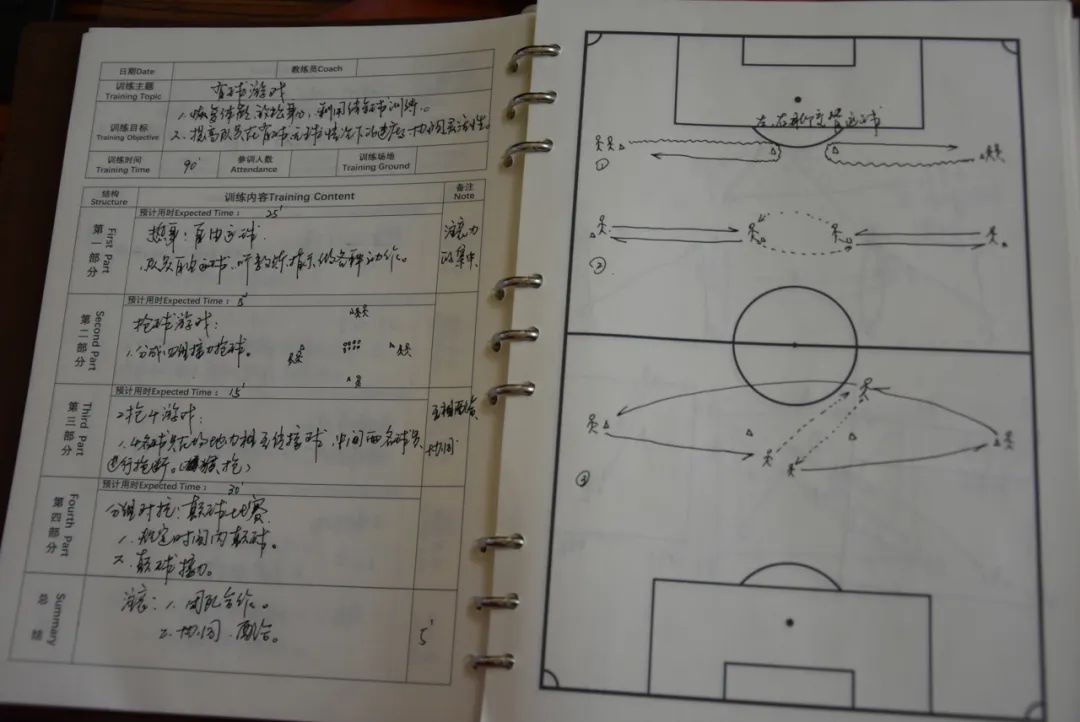 日期Date 教练员Coach
训练主题 Training Topic 有球游戏
训练目标 Training Objective
1. 恢复体能
2. 提高队员在有球、无球情况下的 协调灵活性。
训练时间 Training Time 90' 参训人数 Attendance 训练场地 Training Ground
结构 Structure 训练内容Training Content 备注 Note
第一部分 First Part
预计用时Expected Time: 25'
热身:自由运球.
队员自由运球、听教练指示做各种动作。
注意力
集中
第二部分 Second Part
预计用时Expected Time:
抢球游戏:
1. 分成四组接力抢球。
第三部分 Third Part
预计用时Expected Time: 15'
2抢4游戏:
1. 4名球员在 相互传接球、中间两名球员
进行抢断。
互相配合、
协同
第四部分 Fourth Part
预计用时Expected Time: 30'
分组对抗:颠球比赛
1. 规定时间内颠球。
2. 颠球接力。
总结 Summary
注意:1. 团队合作。
2. 协同、配合。
5'
左、右 变换运球
①
②
③